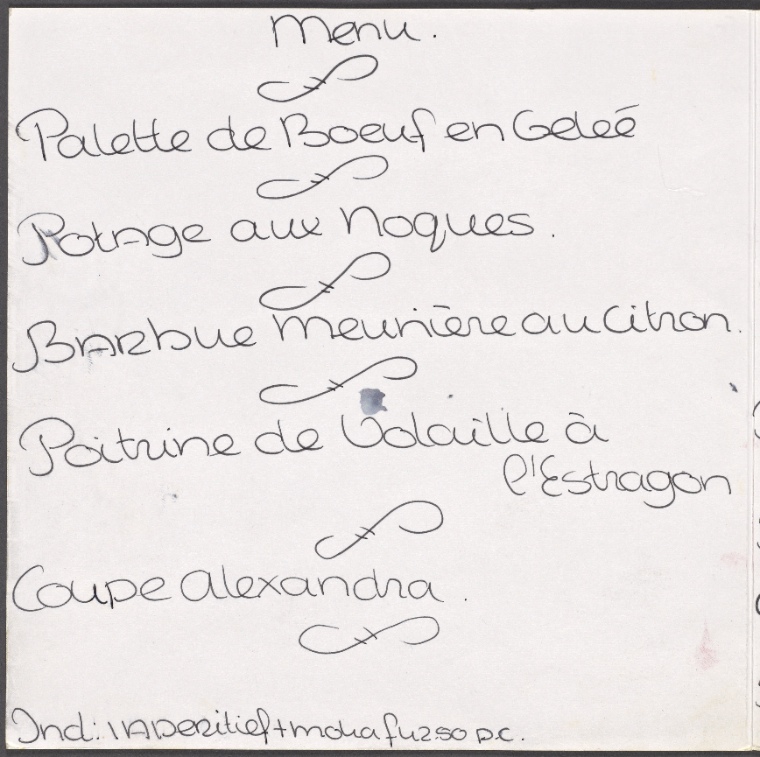 Menu.
Palette de Boeuf en Geleé
Potage aux Noques.
Barbue Meunière au Citron.
Poitrine de Volaille à
l'Estragon
Coupe Alexandra.
Incl: 1 Aperitief + moka f 42.50 p.c.